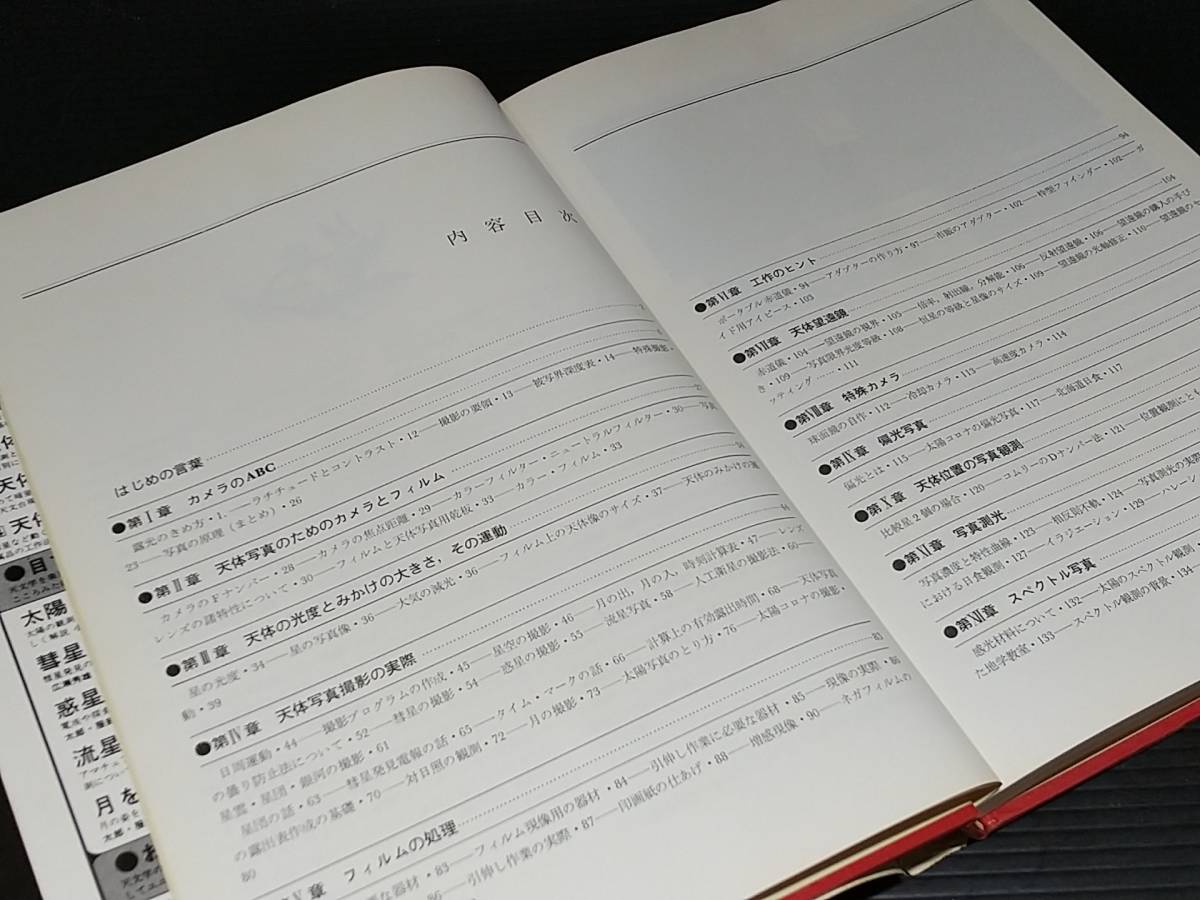 内容目次
はじめの言葉
●第Ⅰ章 カメラのABC
露光のきめ方・1.――ラチチュードとコントラスト・12――撮影の要領・13――被写界深度表・14――特殊撮影・
23――写真の原理(まとめ)・26
●第Ⅱ章 天体写真のためのカメラとフィルム
カメラのFナンバー・28――カメラの焦点距離・29――カラーフィルター・ニュートラルフィルター・30――写真
レンズの諸特性について・30――フィルムと天体写真用乾板・33――カラー・フィルム・33
●第Ⅲ章 天体の光度とみかけの大きさ,その運動
星の光度・34――星の写真像・36――大気の減光・36――フィルム上の天体像のサイズ・37――天体のみかけの運
動・39
●第Ⅳ章 天体写真撮影の実際
日周運動・44――撮影プログラムの作成・45――星空の撮影・46――月の出,月の入,時刻計算表・47――レンズ
の曇り防止法について・52――彗星の撮影・54――惑星の撮影・55――流星写真・58――人工衛星の撮影法・60――
星雲・星団・銀河の撮影・61
星団の話・63――彗星発見電報の話・65――タイム・マークの話・66――計算上の有効露出時間・68――天体写真
の露出表作成の基礎・70――対日照の観測・72――月の撮影・73――太陽写真のとり方・76――太陽コロナの撮影・
80
章 フィルムの処理 83
に必要な器材・83――フィルム現像用の器材・84――引伸し作業に必要な器材・85――現像の実際・86
86――引伸し作業の実際・87――印画紙の仕あげ・88――増感現像・90――ネガフィルムの
●第Ⅵ章 工作のヒント 94
ポータブル赤道儀・94――アダプターの作り方・97――市販のアダプター・102――枠型ファインダー・102――ガ
イド用アイピース・103
●第Ⅶ章 天体望遠鏡 104
赤道儀・104――望遠鏡の視界・105――倍率,射出瞳,分解能・106――反射望遠鏡・106――望遠鏡の購入の手び
き・109――写真限界光度等級・108――恒星の等級と星像のサイズ・109――望遠鏡の光軸修正・110――望遠鏡のセ
ッティング・111
●第Ⅷ章 特殊カメラ
球面鏡の自作・112――冷却カメラ・113――高速度カメラ・114
●第Ⅸ章 偏光写真
偏光とは・115――太陽コロナの偏光写真・117――北海道日食・117
●第Ⅹ章 天体位置の写真観測
比較星2個の場合・120――コムリーのDナンバー法・121――位置観測にと
●第Ⅺ章 写真測光
写真濃度と特性曲線・123――相反則不軌・124――写真測光の実際
における日食観測・127――イラジェーション・129――ハレーシ
●第Ⅻ章 スペクトル写真
感光材料について・132――太陽のスペクトル観測
た地学教室・133――スペクトル観測の背景・134
天体
天体
天体
●目
太陽
彗星
惑星
流星
月を